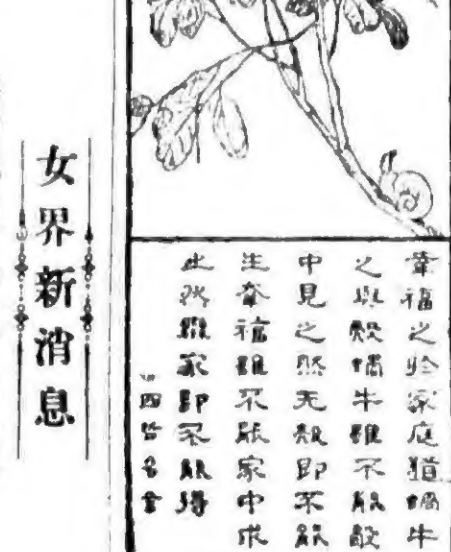 幸福之於家庭猶蝸牛
之與殼蝸牛雖不能殼
中見之然无殼即不能
生幸福雖不能家中求
此然離家即不能得
西哲名言
女界新消息